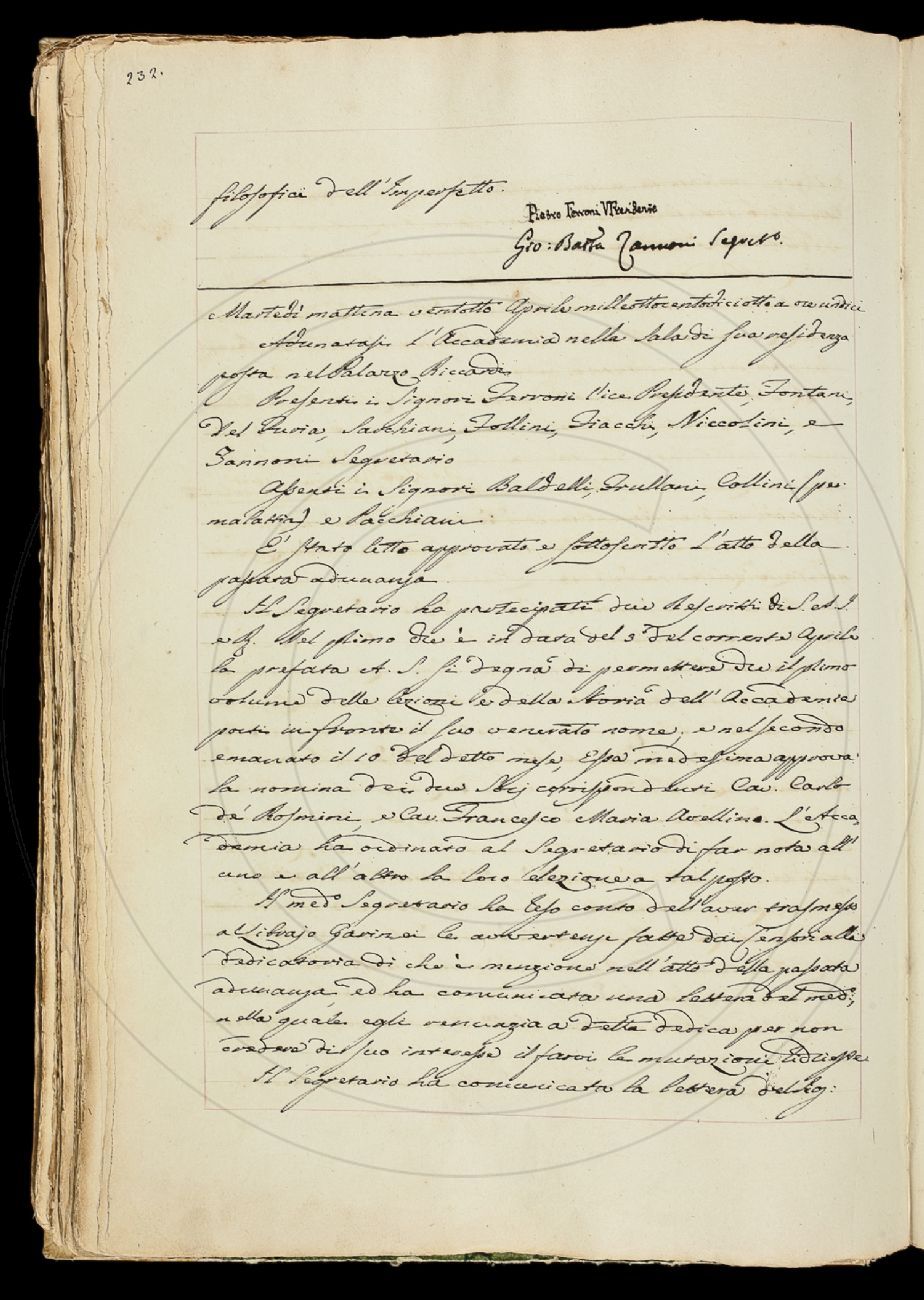 232.
filosofici dell'Imperfetto.
Pietro Ferroni VPresidente
Gio: Batta Zannoni Segret.o
Martedì mattina ventotto Aprile milleottocentodiciotto a ore undici
Adunatasi l'Accademia nella Sala di sua residenza
posta nel Palazzo Riccardi
Presenti i Signori Ferroni Vice Presidente, Fontani,
Del Furia, Sarchiani, Follini, Fiacchi, Niccolini, e
Zannoni Segretario
Assenti i Signori Baldelli, Frullani, Collini (per
malattia) e Pacchiani
E' stato letto approvato e sottoscritto l'atto della
passata adunanza
Il Segretario ha partecipati due Rescritti di S. A. I.
e R. Nel primo che è in data del 3 del corrente Aprile
la prefata A. S. si degna di permettere che il primo
volume delle lezioni e della Storia dell'Accademia
porti in fronte il suo venerato nome; e nel secondo
emanato il 10 del detto mese, Essa medesima approva
la nomina dei due Sócj corrispondenti Cav. Carlo
de' Rosmini, e Cav. Francesco Maria Avellino. L'Acca,
demia ha ordinato al Segretario di far nota all'
uno e all'altro la loro elezione a tal posto.
Il med.o Segretario ha reso conto dell'aver trasmesso
al Librajo Garinei le avvertenze fatte dai Censori alla
dedicatoria di che è menzione nell'atto della passata
adunanza ed ha comunicata una lettera del med.o,
nella quale egli renunzia a detta dedica per non
credere di suo interesse il farvi le mutazioni richieste
Il Segretario ha comunicata la lettera del Sig: